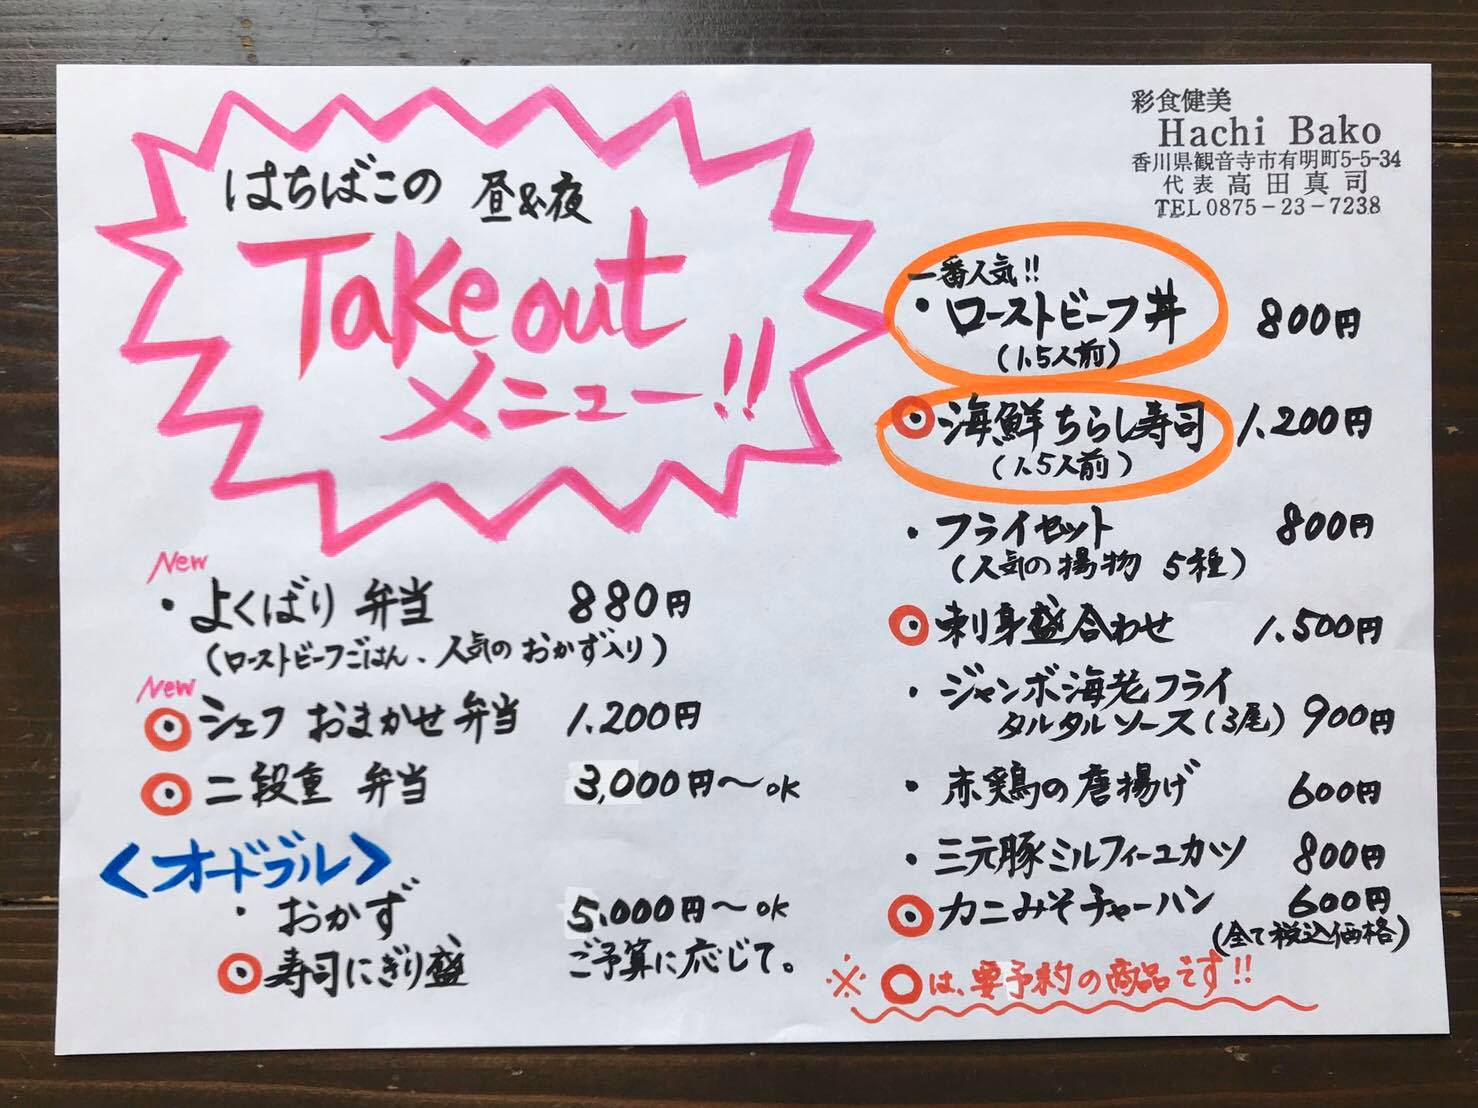 彩食健美
Hachi Bako
香川県観音寺市有明町5-5-34
代表 高田真司
TEL 0875-23-7238
はちばこの 昼&夜
Take out
メニュー!!
New
・よくばり弁当 880円
(ローストビーフごはん、人気のおかず入り)
New
・シェフおまかせ弁当 1,200円
・二段重 弁当 3,000円〜OK
<オードブル>
・おかず 5,000円〜OK
・寿司にぎり盛 ご予算に応じて。
一番人気!!
・ローストビーフ丼 800円
(1.5人前)
・海鮮ちらし寿司 1,200円
(1.5人前)
・フライセット 800円
(人気の揚物 5種)
・刺身盛合わせ 1,500円
・ジャンボ海老フライ
タルタルソース(3尾) 900円
・赤鶏の唐揚げ 600円
・三元豚ミルフィーユカツ 800円
・カニみそチャーハン 600円
(全て税込価格)
※○は、要予約の商品です!!